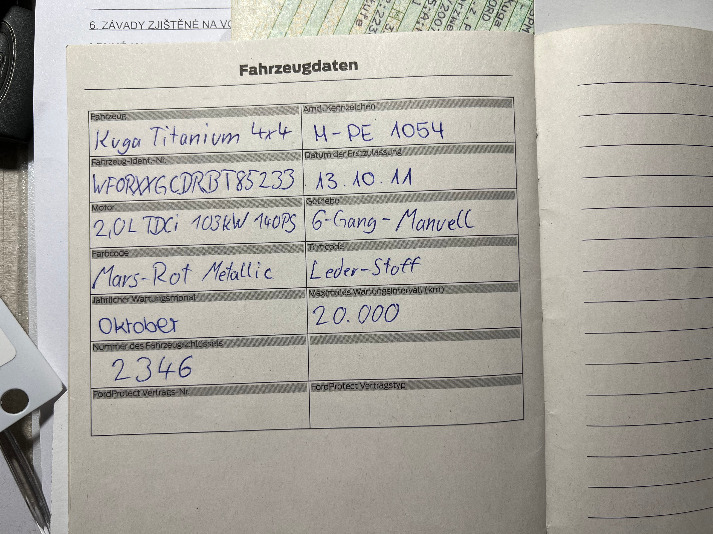 6. ZÁVADY ZJIŠTĚNÉ NA VO
Fahrzeugdaten
Fahrzeug
Amtl. Kennzeichen
Kuga Titanium 4x4
M-PE 1054
Fahrzeug-Ident.-Nr.
Datum der Erstzulassung
WF0RXXGCDRBT85233
13.10.11
Motor
Getriebe
2,0L TDCi 103kW 140PS
6-Gang-Manuell
Farbcode
Trimcode
Mars-Rot Metallic
Leder-Stoff
Jährlicher Wartungsmonat
Maximales Wartungsintervall (km)
Oktober
20.000
Nummer des Fahrzeugschlüssels
2346
FordProtect Vertrags-Nr.
FordProtect Vertragstyp